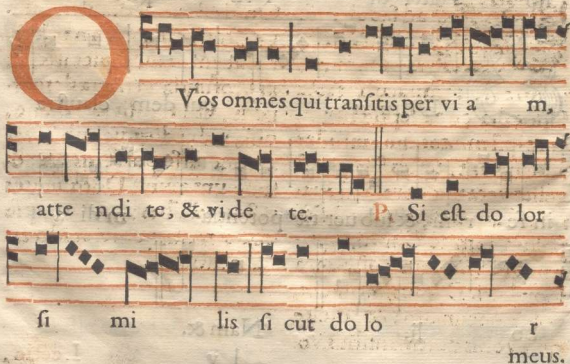 O Vos omnes qui tranſitis per vi a m,
atte ndi te, & vide te. P. Si eſt do lor
ſi mi lis ſi cut do lo r
meus.